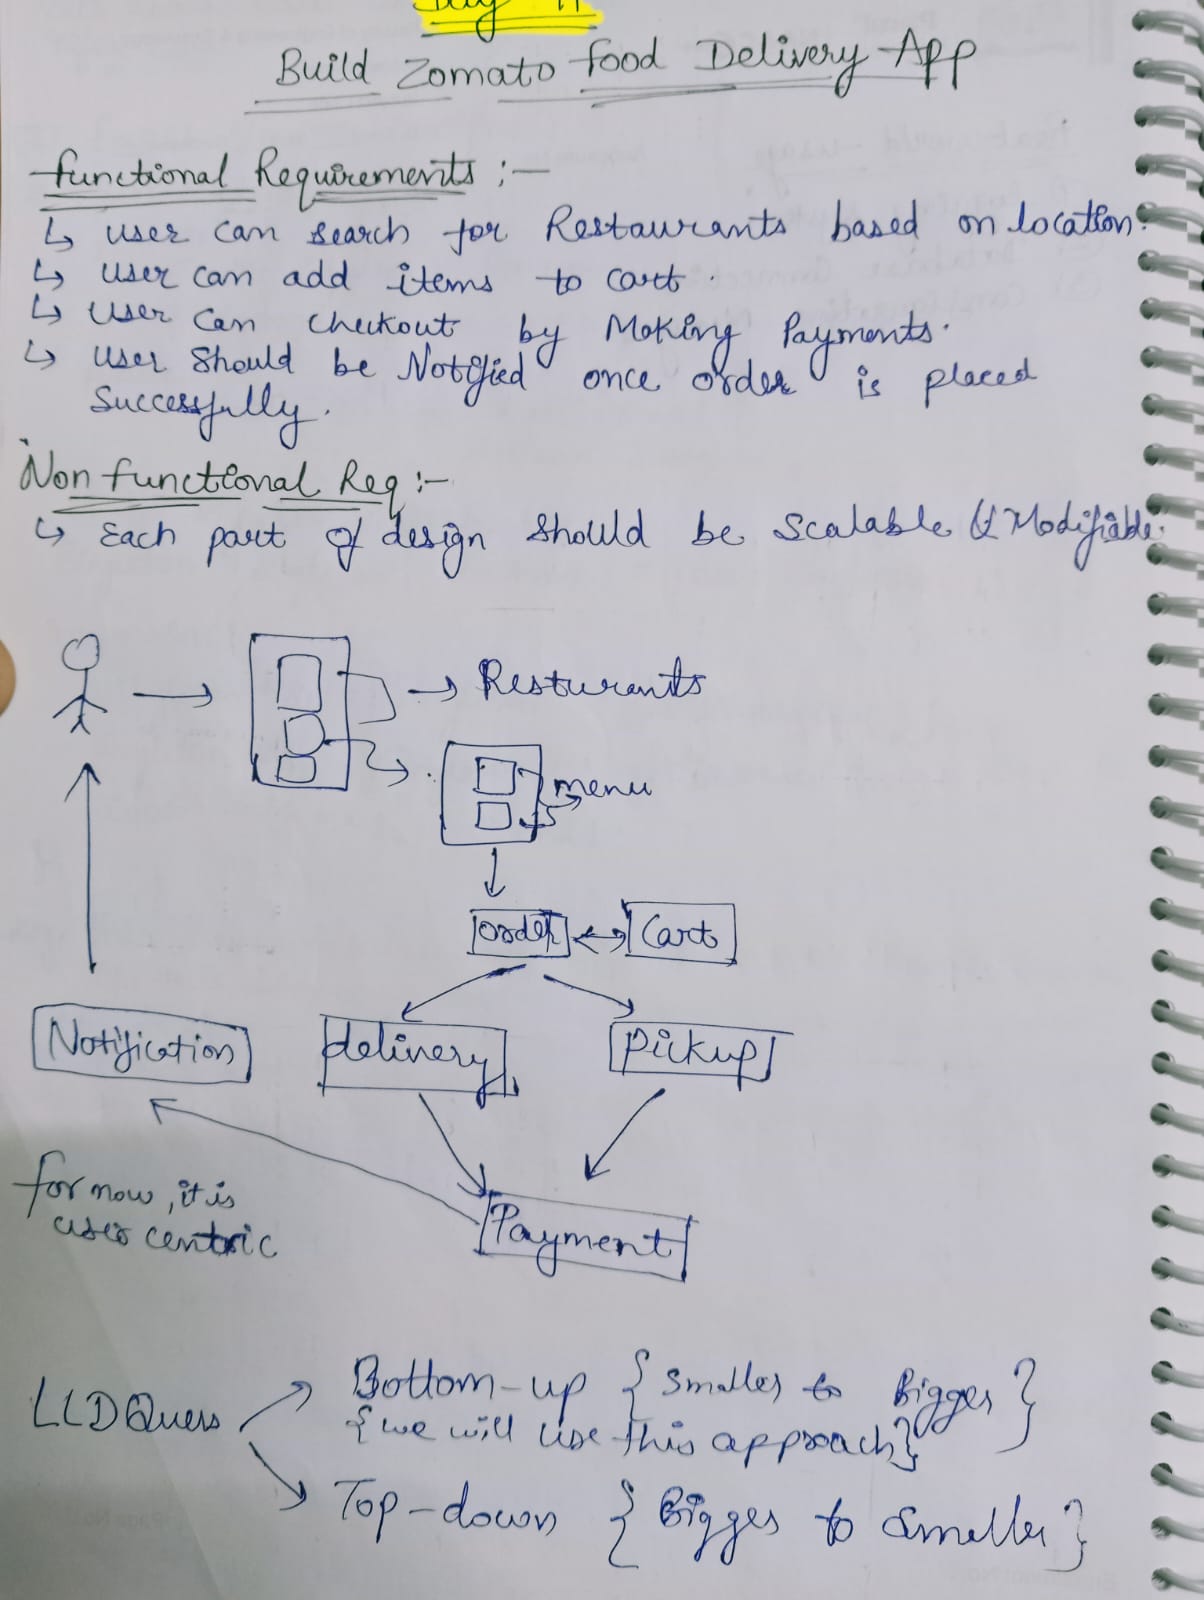 Day 11
Build Zomato Food Delivery App
Functional Requirements :-
↳ User can search for Restaurants based on location.
↳ User can add items to cart.
↳ User can checkout by Making Payments.
↳ User should be Notified once order is placed
successfully.
Non functional Req :-
↳ Each part of design should be Scalable & Modifiable.
Resturants
menu
order
Cart
Notification
delivery
Pickup
for now, it is
user centric
Payment
LLD Ques
Bottom-up { smaller to Bigger }
{ we will use this approach }
Top-down { Bigger to smaller }